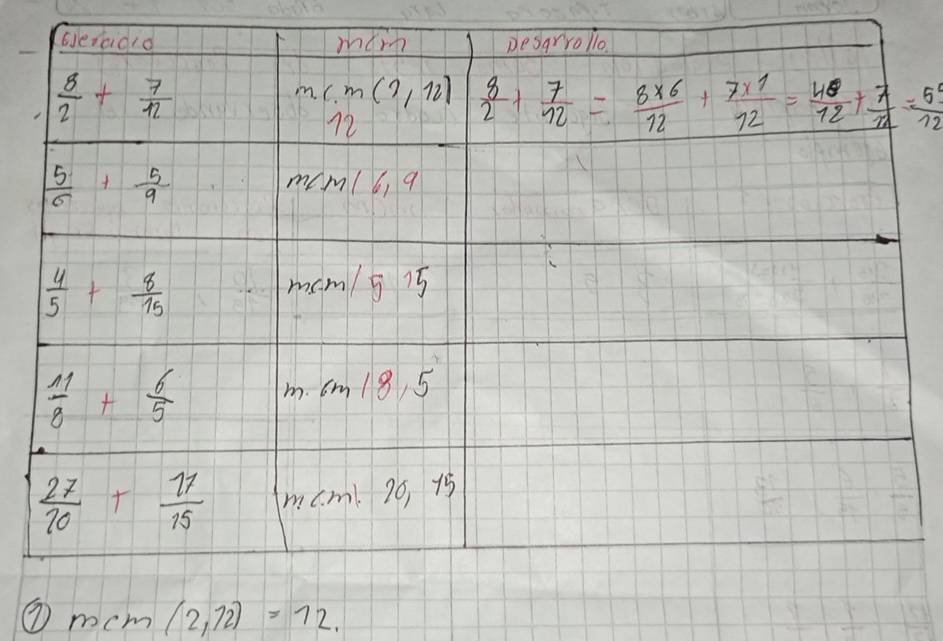 Ejercicio mcm Desarrollo.
8/2 + 7/12 m.c.m(2,12) 12 8/2 + 7/12 = 8x6/12 + 7x1/12 = 48/12 + 7/12 = 55/12
5/6 + 5/9 mcm/ 6, 9
4/5 + 8/15 mcm/ 5 15
11/8 + 6/5 m.cm/ 8, 5
27/20 + 17/15 m.c.m. 20, 15
① mcm (2,12) = 12.